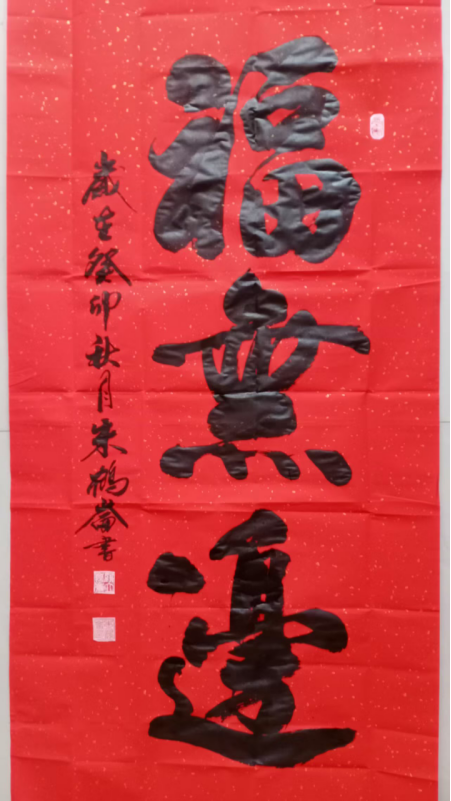 福無邊
歲在癸卯秋月朱鶴崙書